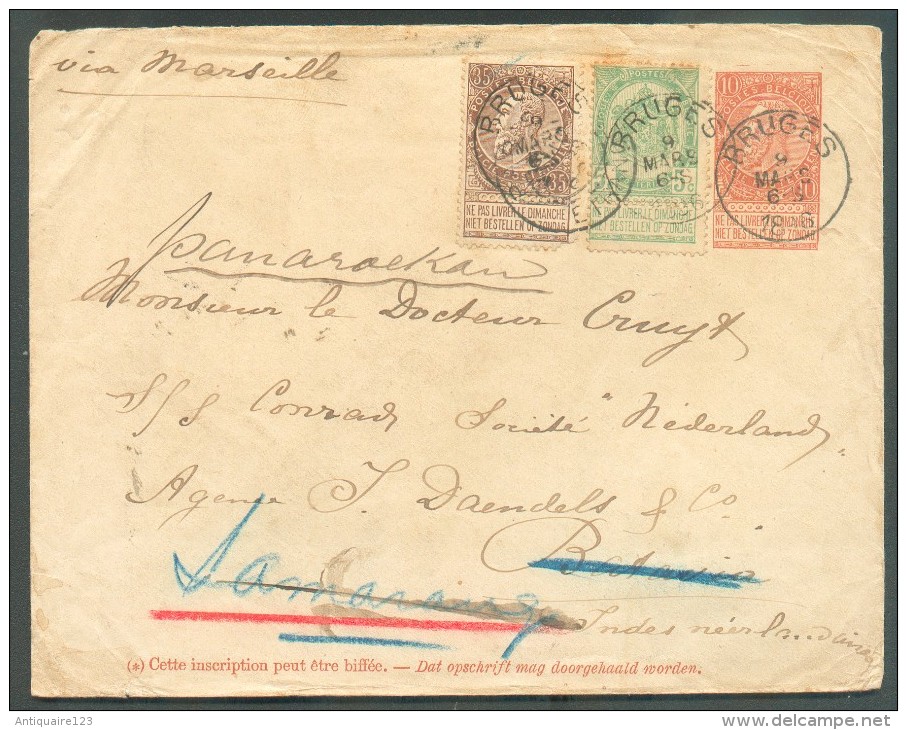 via Marseille
35
POSTES BELGIQUE
35
NE PAS LIVRER LE DIMANCHE
NIET BESTELLEN OP ZONDAG
BRUGES
POSTES
5 c
NE PAS LIVRER LE DIMANCHE
NIET BESTELLEN OP ZONDAG
BRUGES
9
MARS
6-S
10
POSTES BELGIQUE
10
NE PAS LIVRER LE DIMANCHE
NIET BESTELLEN OP ZONDAG
BRUGES
9
6-S
Panaroekan
Monsieur le Docteur Cruyt
S/S Conrad Société "Nederland"
Agence J. Daendels & Co
Batavia
Samarang
Indes néerlandaises
(*) Cette inscription peut être biffée. — Dat opschrift mag doorgehaald worden.
Antiquaire123
www.delcampe.net